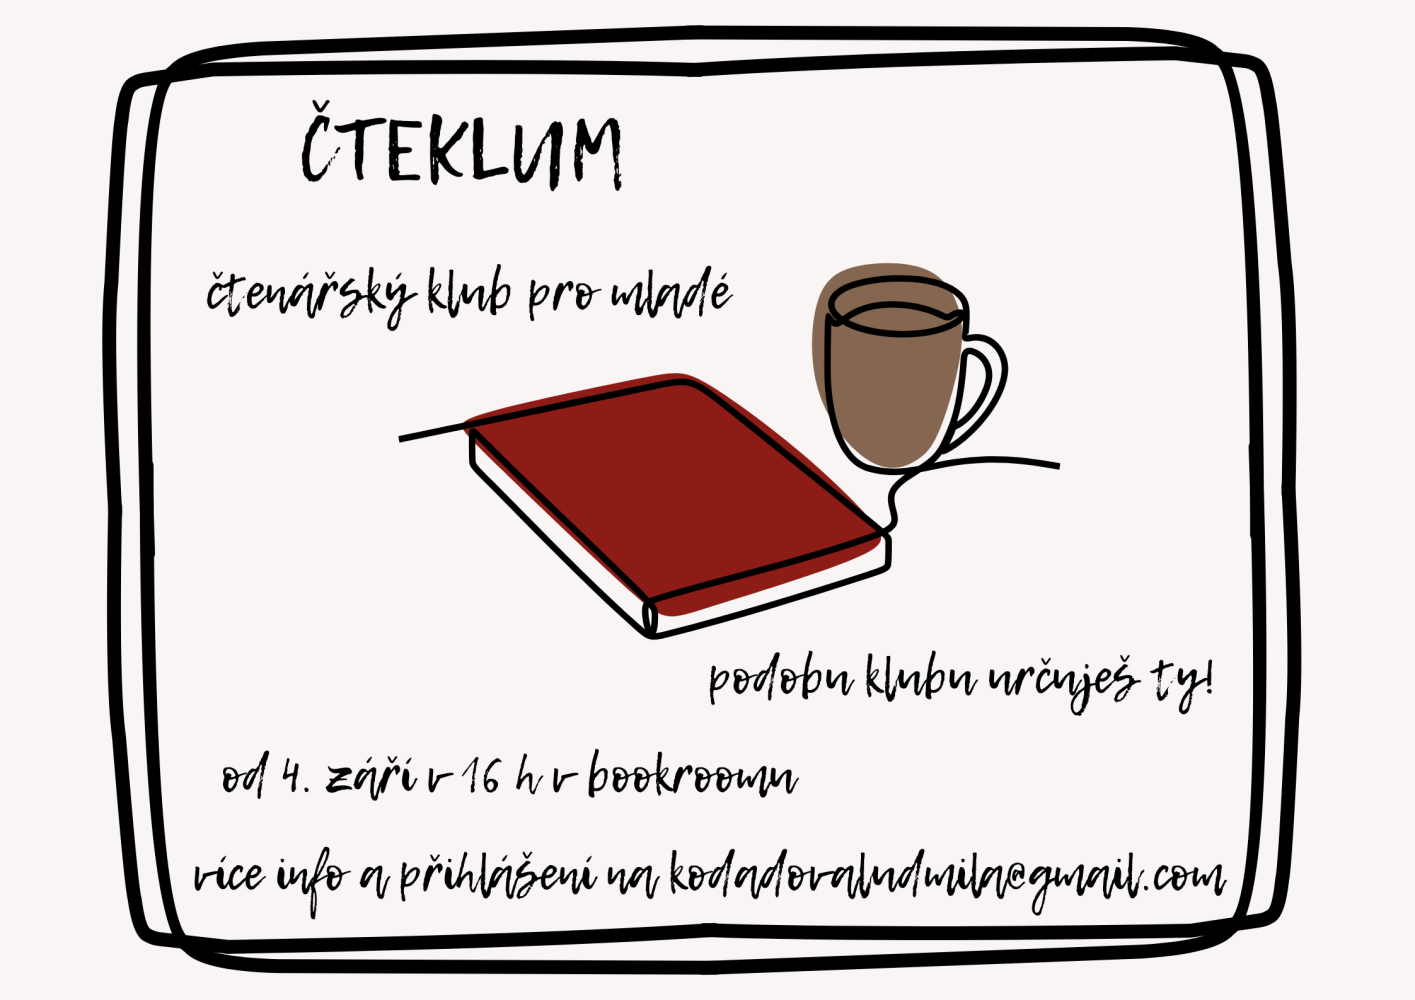 ČTEKLUM
čtenářský klub pro mladé
podobu klubu určuješ ty!
od 4. září v 16 h v bookroomu
více info a přihlášení na kodadovaludmila@gmail.com